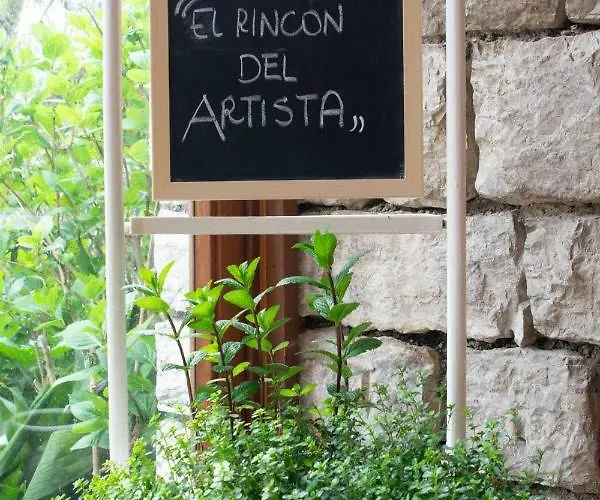 "EL RINCON
DEL
ARTISTA"